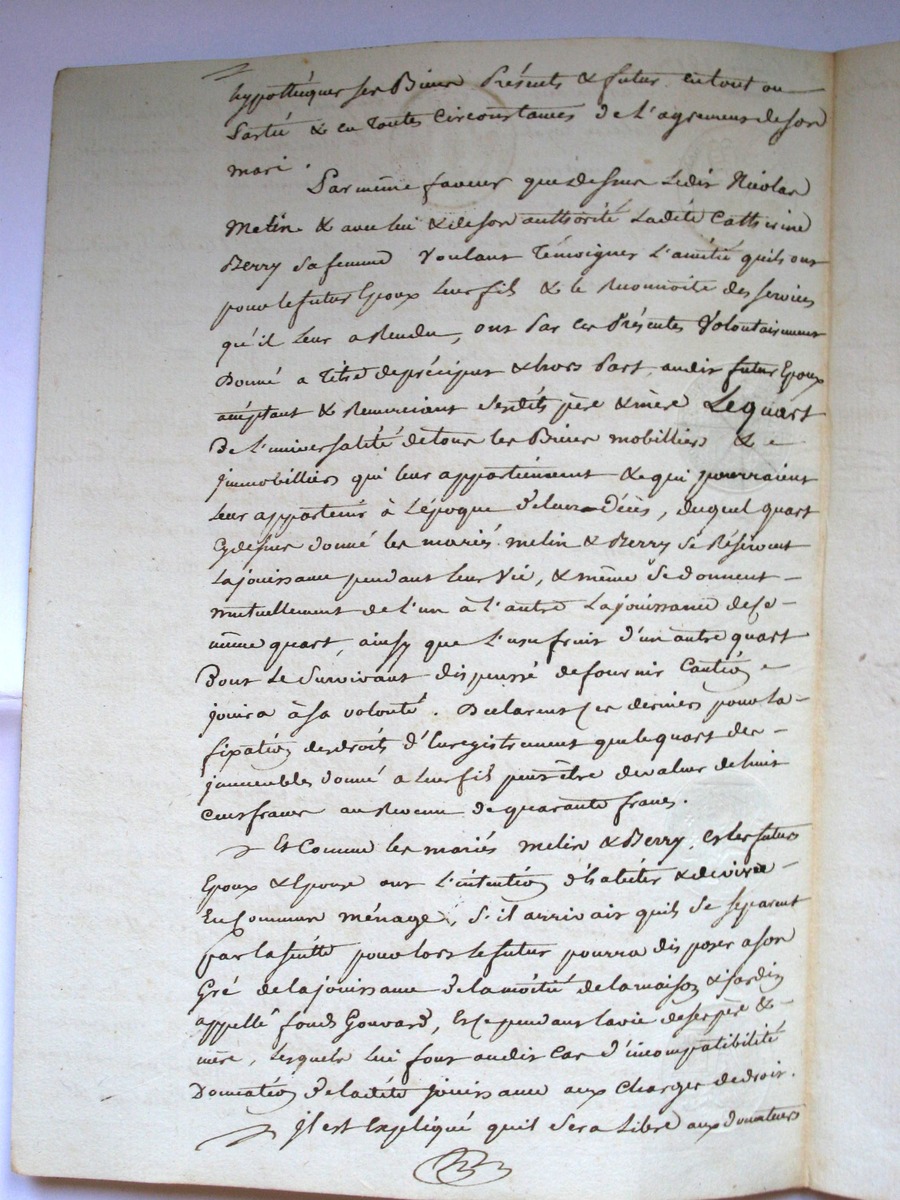 hypothéquer ses Biens Présents & futur en tout ou
Partie & en Toutes Circonstances de L'agrement de son
mari.
Par même faveur que dessus Ledit Nicolas
Melin & avec lui & de son authorité Ladite Catherine
Berry sa femme Voulant Témoigner L'amitié quils ont
pour le futur Epoux Leur fils & le des services
qu'il Leur a Rendu, ont Par ces Présentes Volontairement
Donné a Titre de préciput & hors Part, audit futur Epoux
acceptant & Remerciant Sesdits père & mère Le quart
De L'universalité de tous les Biens mobilliers &
jmmobilliers qui leur appartiennent & qui pourraient
Leur appartenir à L'époque de leur Décès, duquel quart
Cy dessus donné les mariés melin & Berry se Réservent
La jouissance pendant Leur Vie, & même se donnent
mutuellement de L'un à L'autre La jouissance de ce
même quart, ainsy que L'usufruit d'un autre quart
Dont Le Survivant dispensé de fournir Caution
jouira à sa volonté. Declarent ces derniers pour la
fixation des droits d'Enregistrement que le quart des
jmmeubles donné a Leur fils peut être de valeur de huit
cens francs au Revenu de quarante francs.
Et Comme les mariés melin & Berry, et les futurs
Epoux & Epouse ont L'intention d'habiter & de vivre
En Commun ménage, s'il arrivait quils se separent
par la suitte pour lors le futur pourra disposer a son
Gré de la jouissance de la moitié de la maison & jardin
appellé fond Gouvard, Et ce pendant la vie de ses père &
mère, Lesquels Lui font audit Cas d'incompatibilité
Donnation de ladite jouissance aux Charges de droit.
Jl est Expliqué quil sera Libre aux donateurs